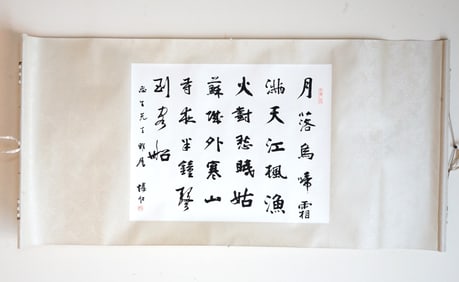 月落烏啼霜
滿天江楓漁
火對愁眠姑
蘇城外寒山
寺夜半鐘聲
到客船
先生雅